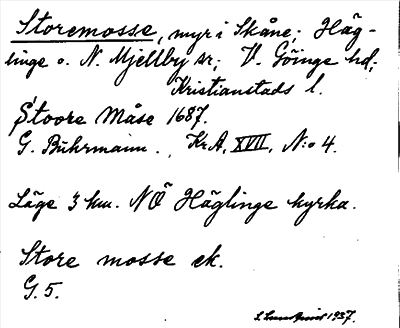 Storemosse, myr i Skåne; Häg-
linge o. N. Mjellby sr; V. Göinge hd;
Kristianstads l.
Stoore Måse 1687.
G. Buhrmann. KrA, XVII, N:o 4.
Läge 3 km. NÖ Häglinge kyrka.
Store mosse ek.
G. 5.
1937.